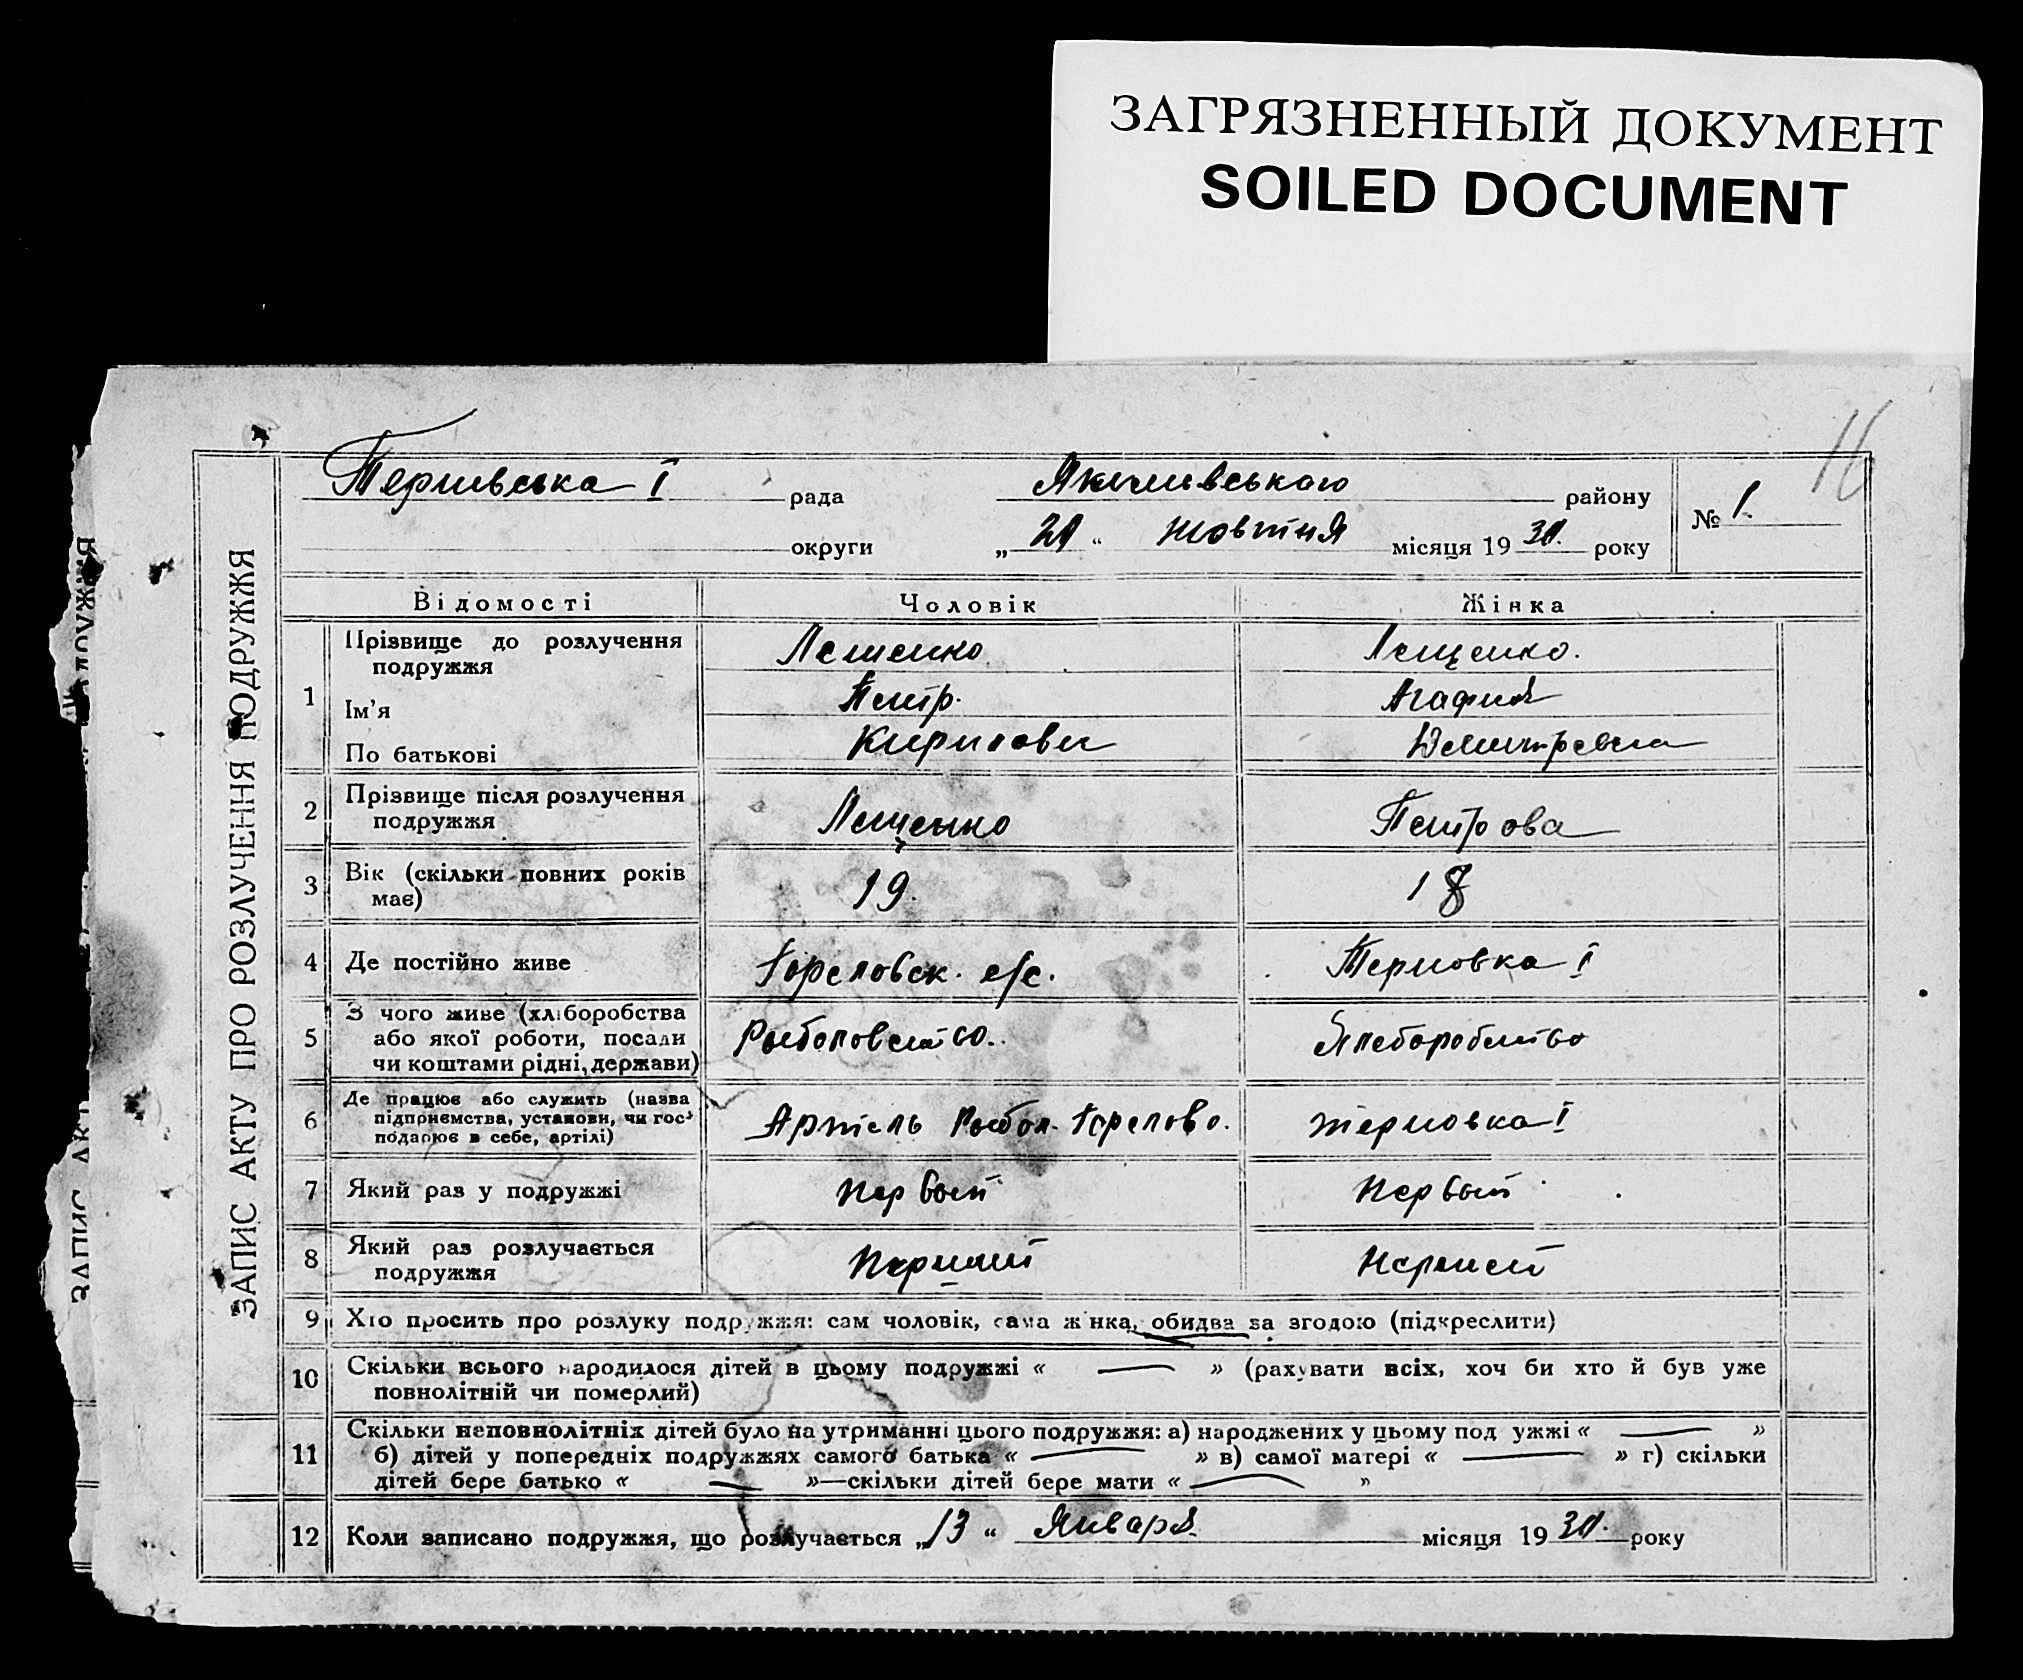 ЗАГРЯЗНЕННЫЙ ДОКУМЕНТ
SOILED DOCUMENT
16
ЗАПИС АКТУ ПРО РОЗЛУЧЕННЯ ПОДРУЖЖЯ
Тернівська I рада Якимівського району № 1.
округи „ “ жовтня місяця 19 року
Відомості Чоловік Жінка
1 Прізвище до розлучення подружжя Лещенко Лещенко.
Ім'я Петр. Агафия
По батькові Кирилович Дмитревна
2 Прізвище після розлучення подружжя Лещенко Петрова
3 Вік (скільки повних років має) 19. 18
4 Де постійно живе Гореловск. с/с. Терновка I
5 З чого живе (хліборобства або якої роботи, посади чи коштами рідні, держави) Рыболовство. Хлеборобство
6 Де працює або служить (назва підприємства, установи, чи господарює в себе, артілі) Артель Рыбол. Горелово. Терновка I
7 Який раз у подружжі Первый Первый
8 Який раз розлучається подружжя Первый Первый
9 Хто просить про розлуку подружжя: сам чоловік, сама жінка, обидва за згодою (підкреслити)
10 Скільки всього народилося дітей в цьому подружжі « — » (рахувати всіх, хоч би хто й був уже
повнолітній чи померлий)
11 Скільки неповнолітніх дітей було на утриманні цього подружжя: а) народжених у цьому подружжі « — »
б) дітей у попередніх подружжях самого батька « — » в) самої матері « — » г) скільки
дітей бере батько « — »—скільки дітей бере мати « — »
12 Коли записано подружжя, що розлучається „13“ Января місяця 19 року